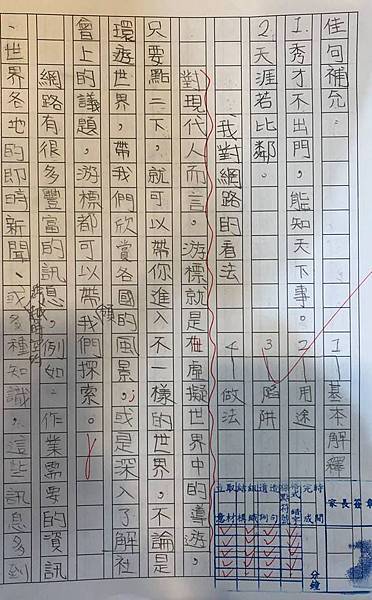 佳句補充:
1.秀才不出門,能知天下事。
2.天涯若比鄰。
1 基本解釋
2 用途
3 陷阱
4 做法
我對網路的看法
對現代人而言,游標就是在虛擬世界中的導遊,
只要點一下,就可以帶你進入不一樣的世界,不論是
環遊世界,帶我們欣賞各國的風景,或是深入了解社
會上的議題,游標都可以帶我們探索。
網路有很多豐富的訊息,例如:作業需要的資訊
、世界各地的即時新聞、或多種知識,這些訊息多到
立意
取材
結構
組織
適例
造句
標點符號
格式 錯字
完成
時間
分鐘
家長簽章